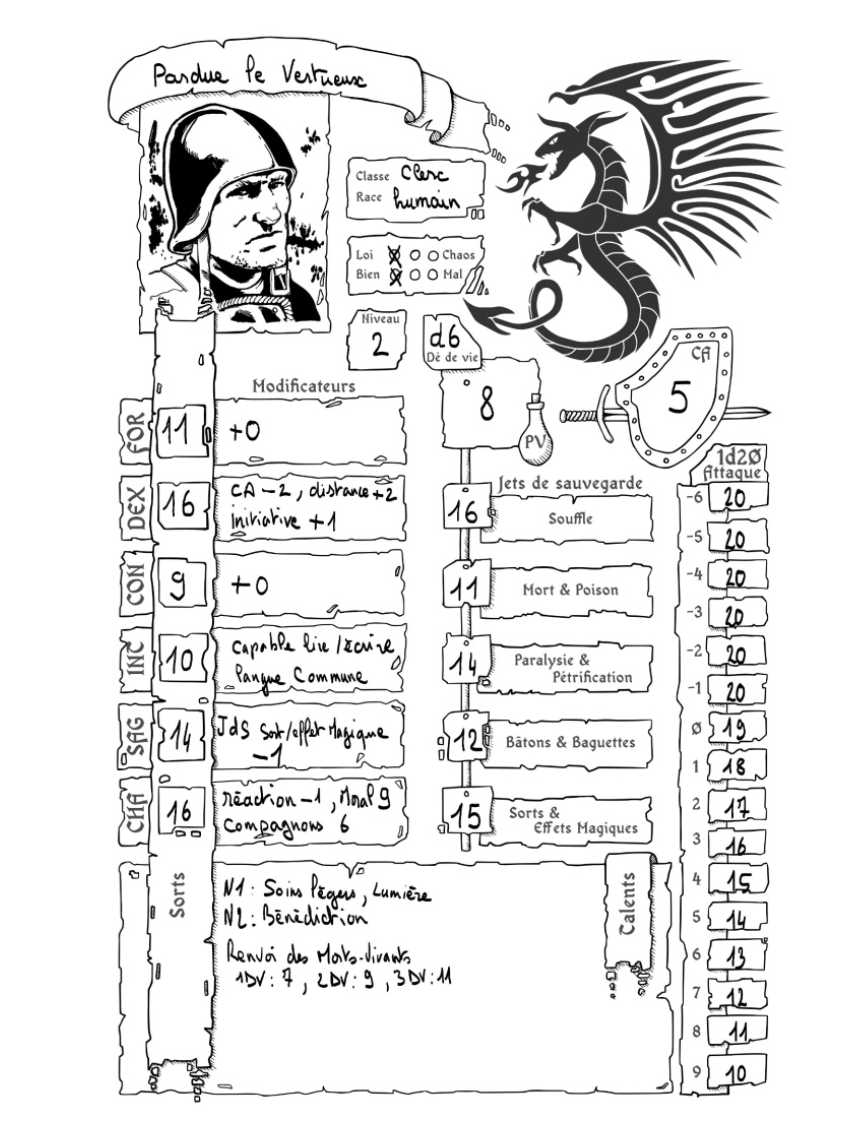 Pardue le Vertueux
Classe Clerc
Race humain
Loi Chaos
Bien Mal
Niveau
2
d6
Dé de vie
8
PV
CA
5
Modificateurs
FOR 11 +0
DEX 16 CA -2, distance +2
initiative +1
CON 9 +0
INC 10 Capable lire / écrire
langue Commune
SAG 14 JdS Sort/effet Magique
-1
CHA 16 réaction -1, Moral 9
Compagnons 6
Jets de sauvegarde
16 Souffle
11 Mort & Poison
14 Paralysie &
Pétrification
12 Bâtons & Baguettes
15 Sorts &
Effets Magiques
1d20
Attaque
-6 20
-5 20
-4 20
-3 20
-2 20
-1 20
0 19
1 18
2 17
3 16
4 15
5 14
6 13
7 12
8 11
9 10
Sorts
N1 : Soins légers, Lumière
N2 : Bénédiction
Renvoi des Morts-Vivants
1DV : 7, 2DV : 9, 3DV : 11
Talents